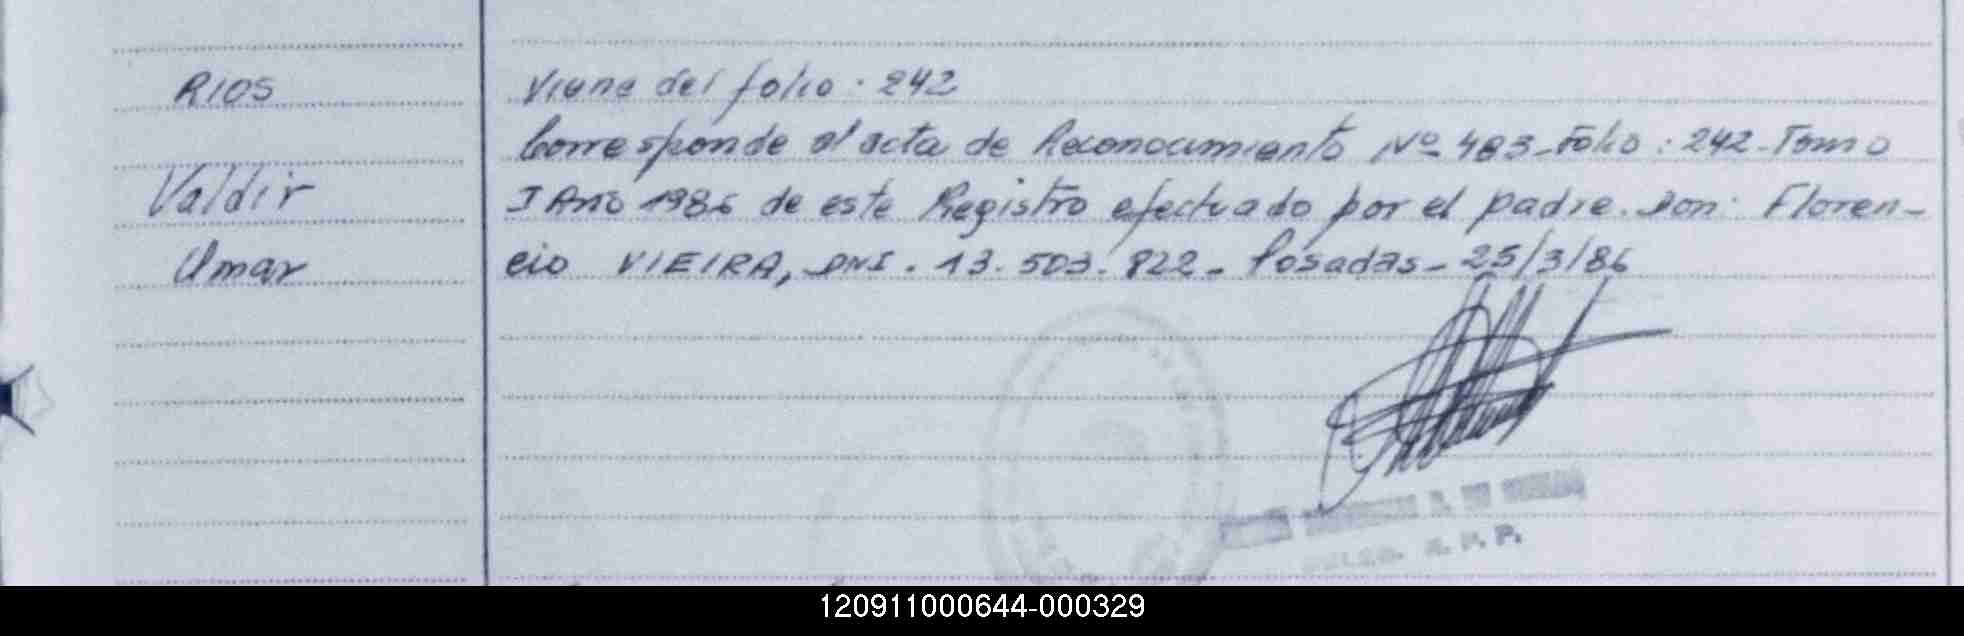 RIOS
Valdir
Umar
Viene del folio. 242
Corresponde al acta de Reconocimiento Nº 483-Folio: 242-Tomo
I Año 1986 de este Registro efectuado por el padre. Don: Floren-
cio VIEIRA, DNI. 13.503.822- Posadas- 25/3/86
120911000644-000329